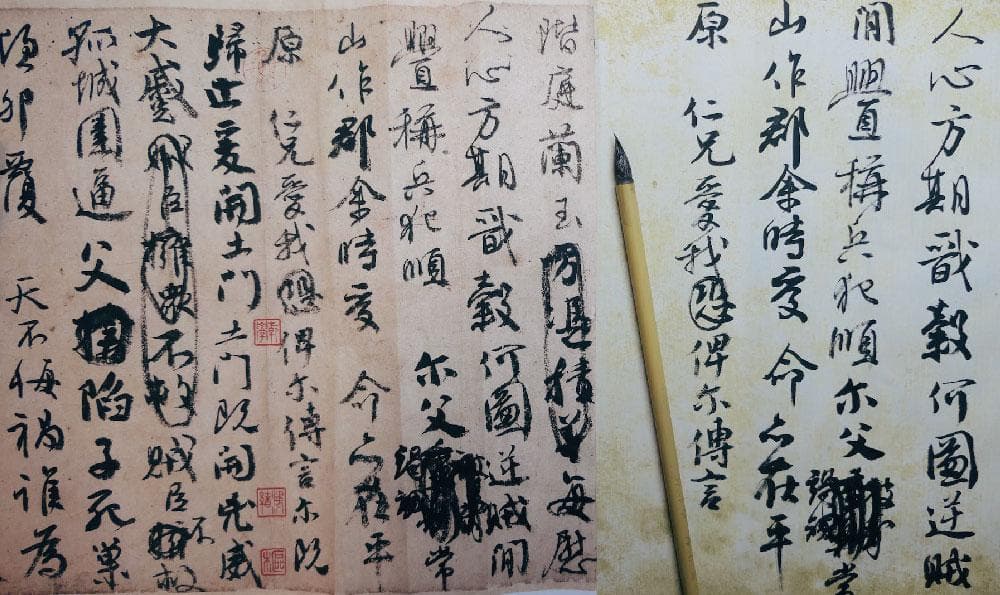 人心方期戩穀何圖逆賊
閒舋直稱兵犯順尔父竭誠常
山作郡余時受命亦在平
原仁兄愛我恐俾尔傳言
階庭蘭玉方憑積善每慰
人心方期戩穀何圖逆賊閒
舋直稱兵犯順尔父竭誠常
山作郡余時受命亦在平
原仁兄愛我恐俾尔傳言尔既
歸止爰開土門土門既開兇威
大蹙賊臣擁衆不救賊臣不救
孤城圍逼父陷子死巢
傾卵覆天不悔禍誰為